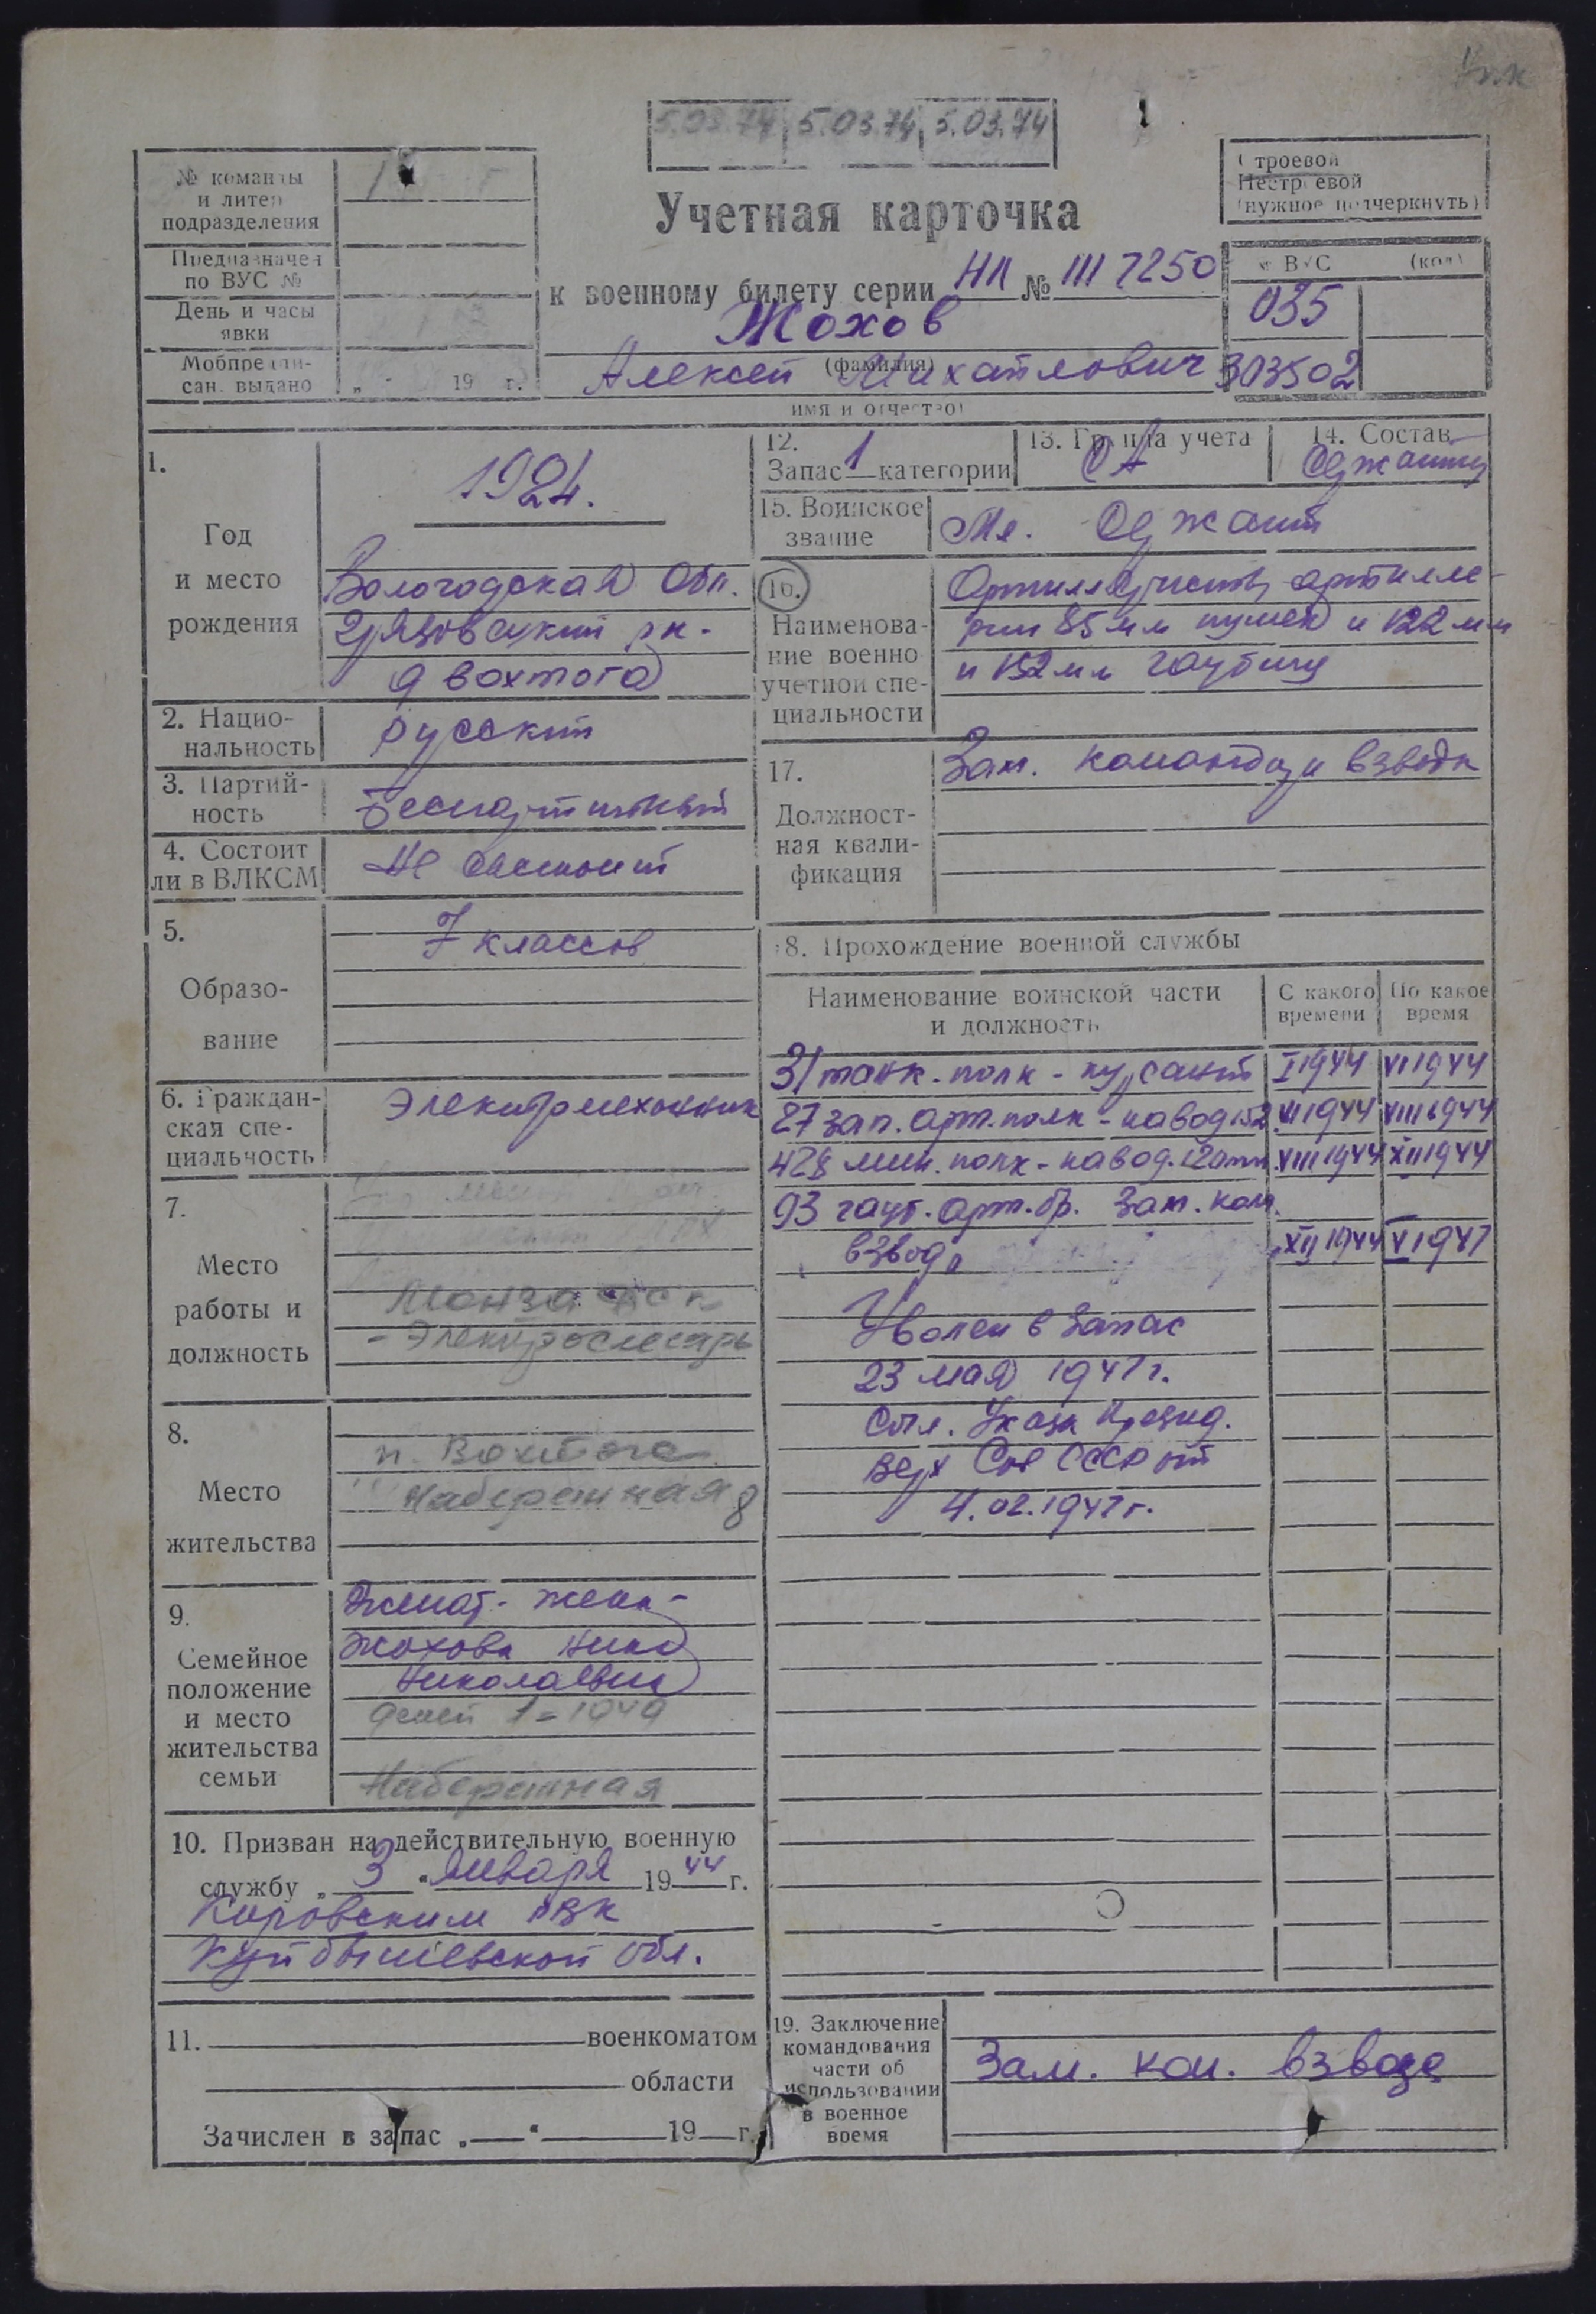 5.03.74 5.03.74 5.03.74
№ команды
и литер
подразделения
Предназначен
по ВУС №
День и часы
явки
Мобпредпи-
сан. выдано
„ “ 19 г.
Строевой
Нестроевой
(нужное подчеркнуть)
Учетная карточка
к военному билету серии НП № III 7250
Жохов
(фамилия)
Алексей Михайлович
имя и отчество)
№ ВУС (код)
035
303502
1.
Год
и место
рождения
1924.
Вологодская Обл.
Грязовецкий рн.
д Вохтога
2. Нацио-
нальность
русский
3. Партий-
ность
беспартийный
4. Состоит
ли в ВЛКСМ
Не состоит
5.
Образо-
вание
7 классов
6. Граждан-
ская спе-
циальность
Электромеханник
7.
Место
работы и
должность
Монза
- Электрослесарь
8.
Место
жительства
п. Вохтога
Набережная 8
9.
Семейное
положение
и место
жительства
семьи
Женат - жена -
Жохова Нина
Николаевна
детей 1 = 1949
Набережная
10. Призван на действительную военную
службу „ 3 “ января 1944 г.
Кировским РВК
Куйбышевской обл.
11. военкоматом
области
Зачислен в запас „ “ 19 г.
12.
Запас 1 категории
13. Группа учета
СА
14. Состав
Сержанты
15. Воинское
звание
Мл. Сержант
16.
Наименова-
ние военно
учетной спе-
циальности
Артиллеристы артилле-
рии 85 мм пушек и 122 мм
и 152 мм гаубиц
17.
Должност-
ная квали-
фикация
Зам. командира взвода
18. Прохождение военной службы
Наименование воинской части
и должность
С какого
времени
По какое
время
31 танк. полк - курсант I 1944 VI 1944
27 зап. арт. полк - навод 152 VI 1944 VIII 1944
428 мин. полк - навод. 120 мм VIII 1944 XII 1944
93 гауб. арт. бр. Зам. ком.
взвода XII 1944 V 1947
Уволен в запас
23 мая 1947 г.
Согл. Указа Презид.
Верх Сов СССР от
4.02.1947 г.
19. Заключение
командования
части об
использовании
в военное
время
Зам. ком. взвода